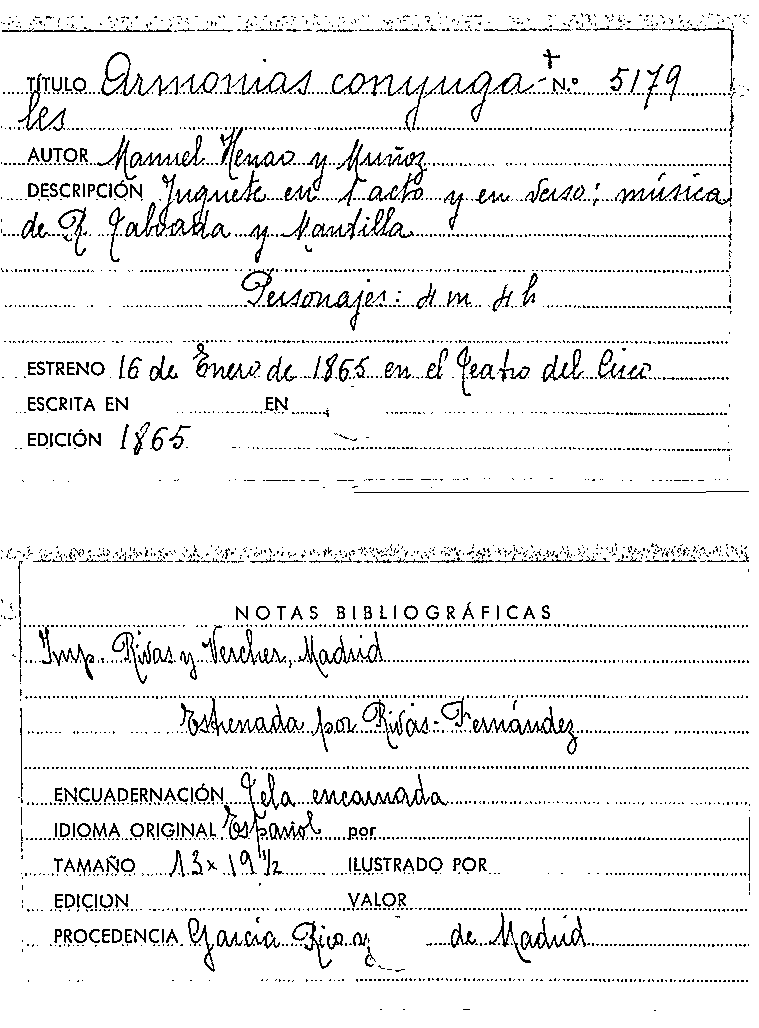 TÍTULO Armonias conyuga- N.º 5179
les
AUTOR Manuel Henao y Muñoz
DESCRIPCIÓN Juguete en 1 acto y en verso; música
de R Taboada y Mantilla
Personajes: 4 m 4 h
ESTRENO 16 de Enero de 1865 en el Teatro del Circo
ESCRITA EN EN
EDICIÓN 1865
NOTAS BIBLIOGRÁFICAS
Imp. Rivas y Vercher, Madrid
Estrenada por Rivas-Fernández
ENCUADERNACIÓN Tela encarnada
IDIOMA ORIGINAL Español por
TAMAÑO 13 x 19 1/2 ILUSTRADO POR
EDICION VALOR
PROCEDENCIA García Rico y de Madrid